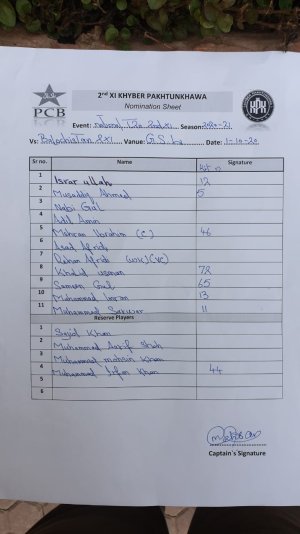 PCB
2nd XI KHYBER PAKHTUNKHAWA
Nomination Sheet
Event: National T20 2nd XI Season: 2020-21
Vs: Balochistan 2XI Vanue: G.S.L Date: 1-10-20
Sr no. Name Signature
1 Israr ullah 12
2 Musaddiq Ahmed 5
3 Nabi Gul
4 Adil Amin
5 Mehran Ibrahim (C) 46
6 Asad Afridi
7 Rehan Afridi (WK)(VC)
8 Khalid usman 72
9 Sameen Gul 65
10 Muhammad Imran 13
11 Muhammad Sarwar 11
Reserve Players
1 Sajid Khan
2 Muhammad Asif Shah
3 Muhammad mohsin Khan
4 Muhammad Irfan Khan 44
5
6
Captain`s Signature